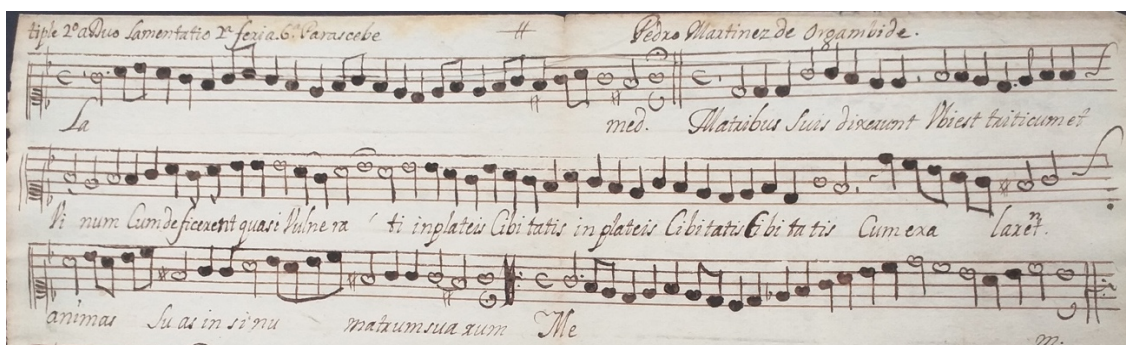 tiple 2º a Duo Lamentatio 2ª feria. 6ª Parascebe Pedro Martinez de Orgambide.
La med. Matribus suis dixerunt Vbi est triticum et
Vi num Cum deficerent quasi Vulne ra ti in plateis Cibi tatis in plateis Cibitatis Cibi ta tis Cum exa larēt.
animas Su as in si nu matrum sua rum Me
m.